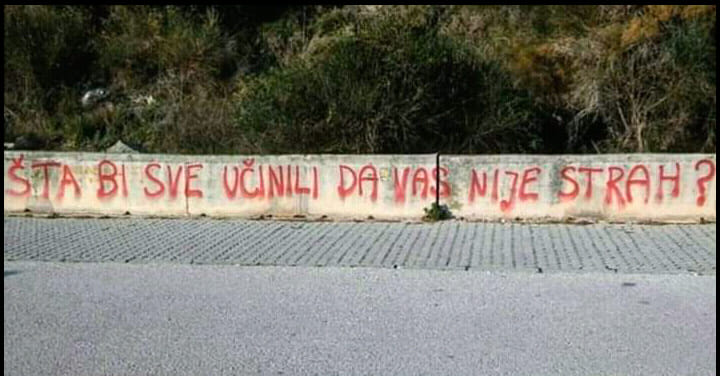 ŠTA BI SVE UČINILI DA VAS NIJE STRAH?